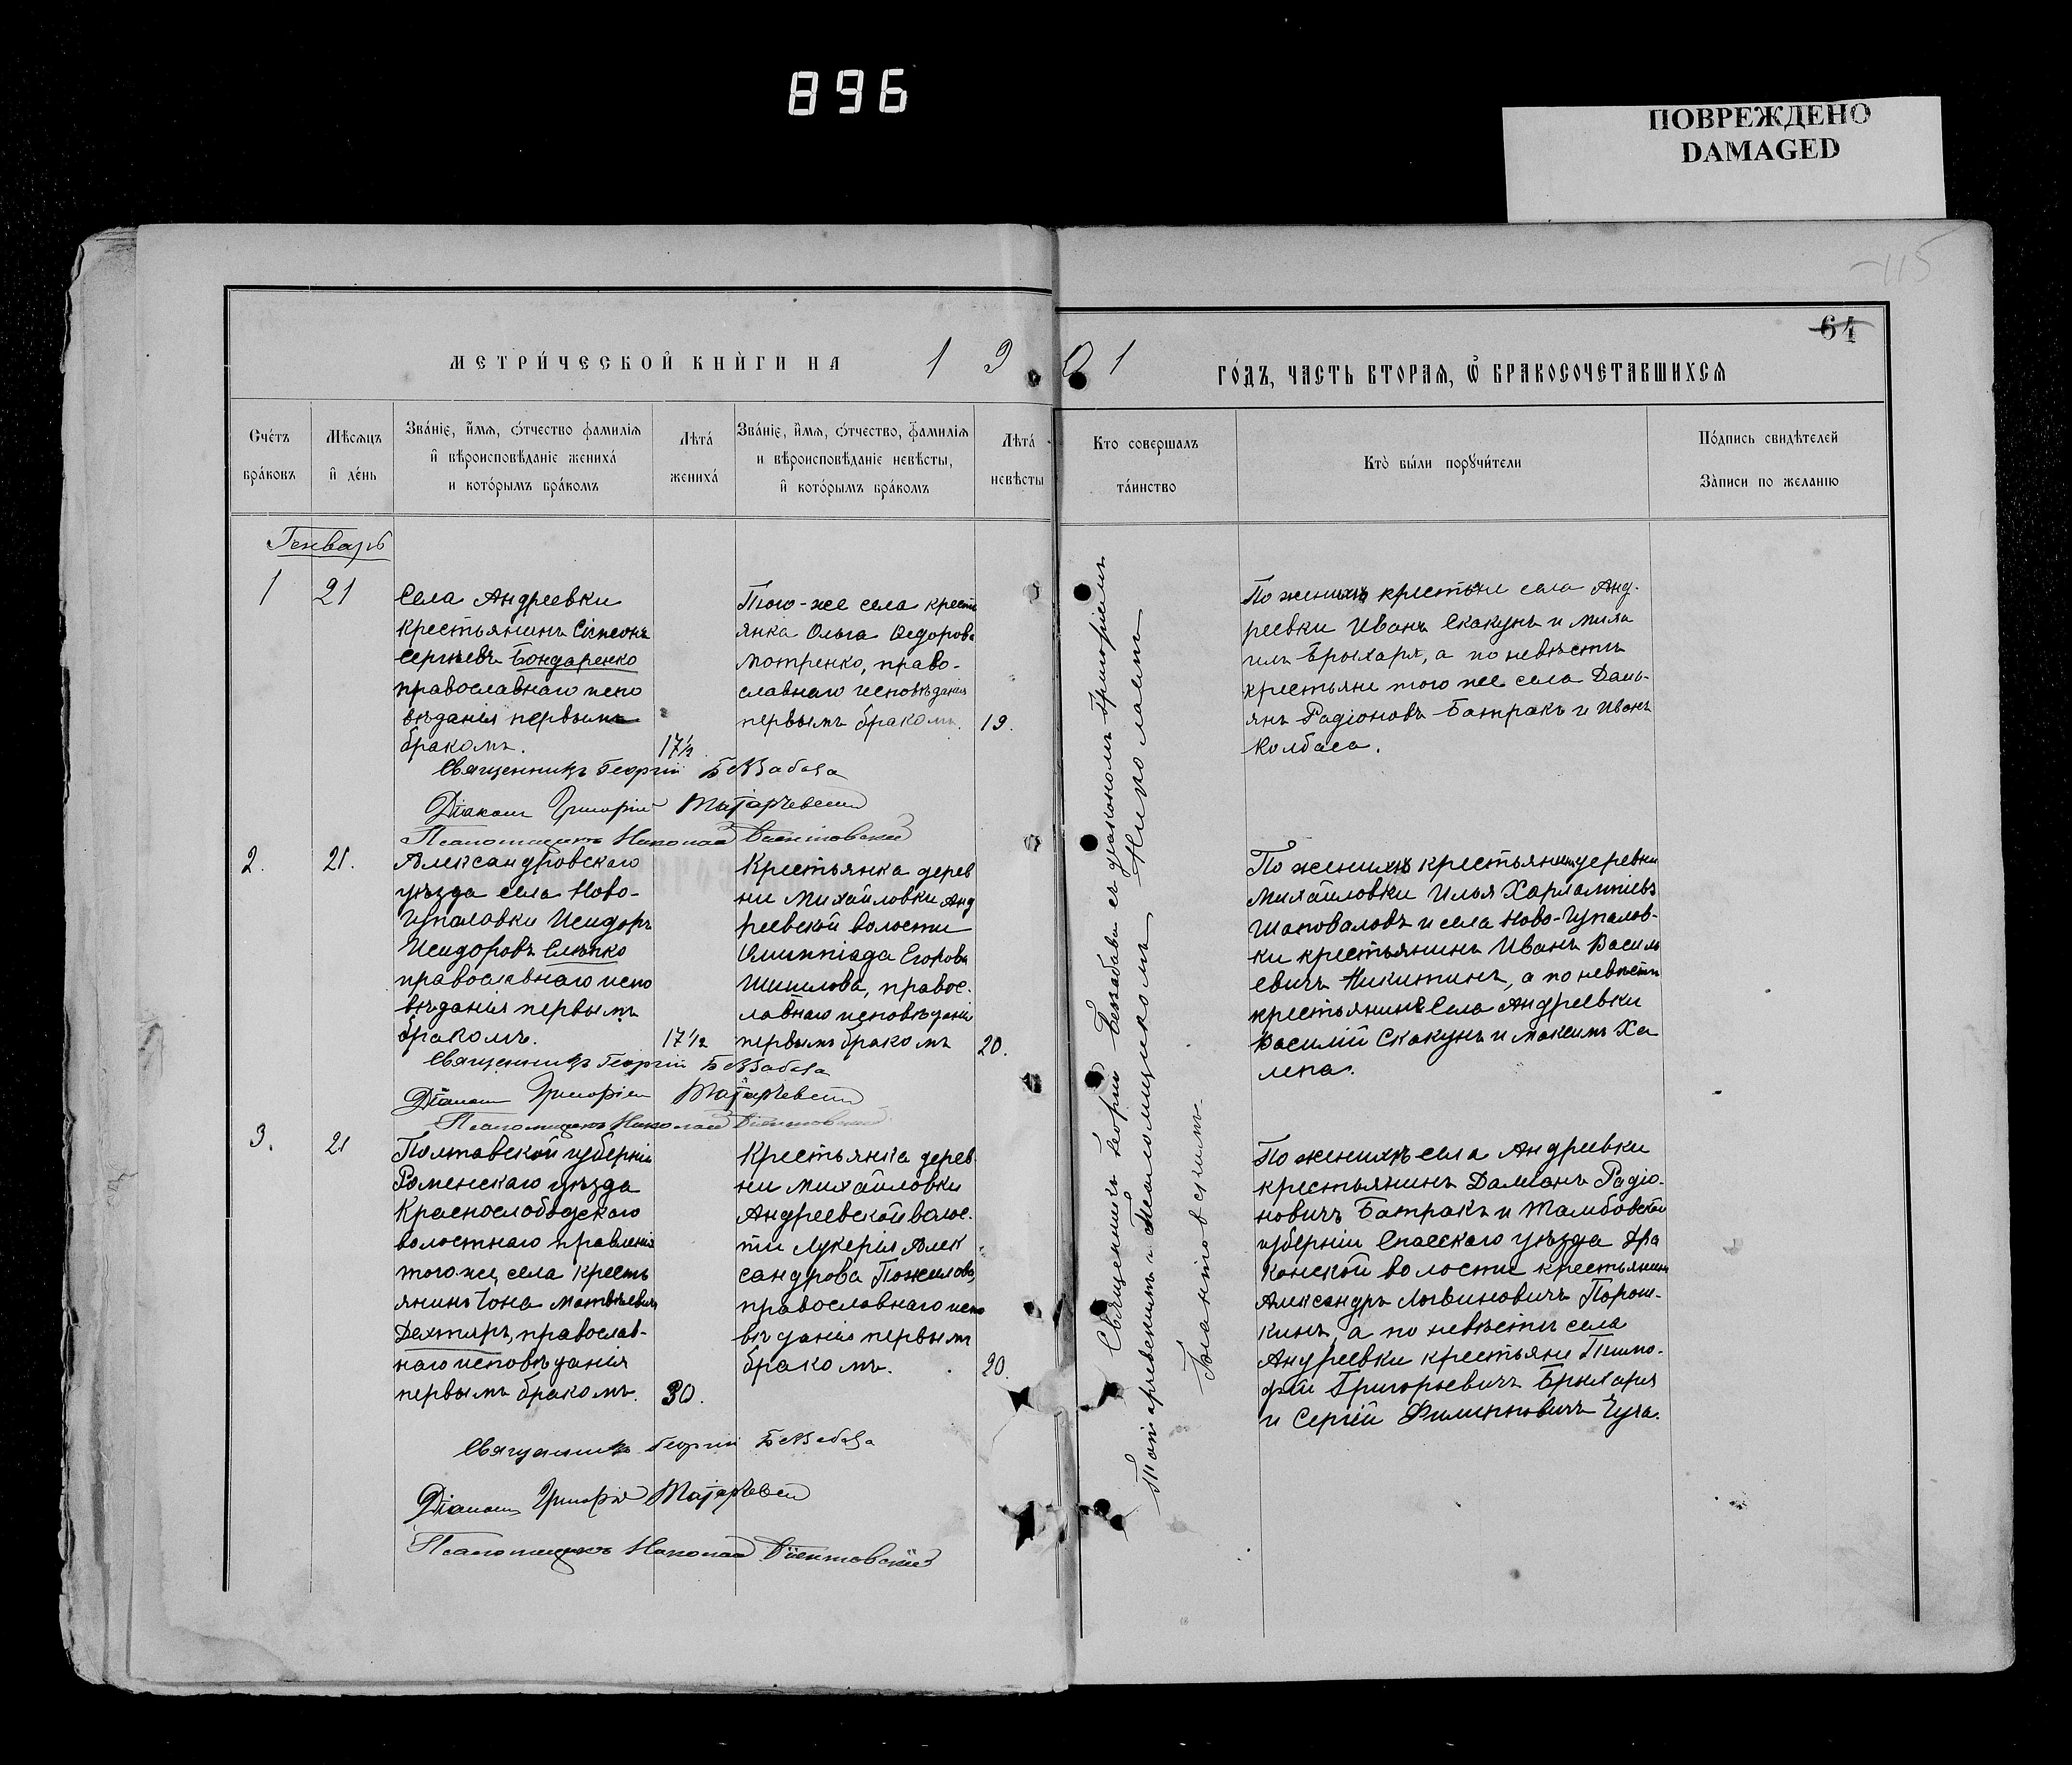 896
ПОВРЕЖДЕНО
DAMAGED
115
64
МЕТРИ́ЧЕСКОЙ КНИ́ГИ НА 1901 ГО́ДЪ, ЧАСТЬ ВТОРАѦ, Ѽ БРАКОСОЧЕТАВШИХСѦ
Сче́тъ
бра́ковъ
Мѣсѧцъ
и де́нь
Зва́нїе, и́мѧ, о́тчество фамилїѧ
и вѣроисповѣ́данїе жениха́
и кото́рымъ бра́комъ
Лѣта́
жениха́
Зва́нїе, и́мѧ, о́тчество, фамилїѧ
и вѣроисповѣ́данїе невѣ́сты,
и кото́рымъ бра́комъ
Лѣта́
невѣ́сты
Кто совершалъ
та́инство
Кто̀ бы́ли порꙋчи́тели
По́дпись свидѣ́телей
За̀писи по желанїю
Генварь
1
21
Села Андреевки
крестьянинъ Сімеонъ
Сергѣевъ Бондаренко
православнаго испо
вѣданія первымъ
бракомъ.
17½
Того-же села кресть
янка Ольга Ѳедорова
Мотренко, право-
славнаго исповѣданія
первымъ бракомъ.
19.
По женихѣ крестьяне села Анд-
реевки Иванъ Скакунъ и Миха
илъ Брыхаря, а по невѣстѣ
крестьяне того же села Дамі-
янъ Радіоновъ Батракъ и Иванъ
Колбаса.
Священникъ Георгій Беззабава
Діаконъ Григорій Татарчевскій
Псаломщикъ Николай
2.
21.
Александровскаго
уѣзда села Ново-
Гупаловки Исидоръ
Исидоровъ Слѣпко
православнаго испо
вѣданія первымъ
бракомъ.
17½
Крестьянка дерев
ни Михайловки Анд
реевской волости
Олимпіада Егорова
Шишлова, правос-
лавнаго исповѣданія
первымъ бракомъ
20.
По женихѣ крестьянинъ деревни
Михайловки Илья Харлампіевъ
Шаповаловъ и села Ново-Гупалов-
ки крестьянинъ Иванъ Василь
евичъ Никитинъ, а по невѣстѣ
крестьяне Села Андреевки
Василій Скакунъ и Максимъ Ха
лепа.
Священникъ Георгій Беззабава
Діаконъ Григорій Татарчевскій
Псаломщикъ Николай
3.
21
Полтавской губерніи
Роменскаго уѣзда
Краснослободскаго
волостнаго правленія
того же села кресть
янинъ Іона Матвѣевичъ
Дехтяръ, православ-
наго исповѣданія
первымъ бракомъ.
30.
Крестьянка дерев
ни Михайловки
Андреевской волос-
ти Лукерія Алек
сандрова Пожилова,
православнаго испо
вѣданія первымъ
бракомъ.
20.
По женихѣ села Андреевки
крестьянинъ Даміанъ Радіо-
новичъ Батракъ и Тамбовской
губерніи Спасскаго уѣзда Дра
конской волости крестьянинъ
Александръ Логвиновичъ Порош-
кинъ, а по невѣстѣ села
Андреевки крестьяне Тимо-
фей Григорьевичъ Брыхаря
и Сергій Филипповичъ Гуча.
Священникъ Георгій Беззабава
Діаконъ Григорій Татарчевскій
Псаломщикъ Николай
Священникъ Георгій Беззабава съ діакономъ Григоріемъ
Татарчевскимъ и Псаломщикомъ Николаемъ